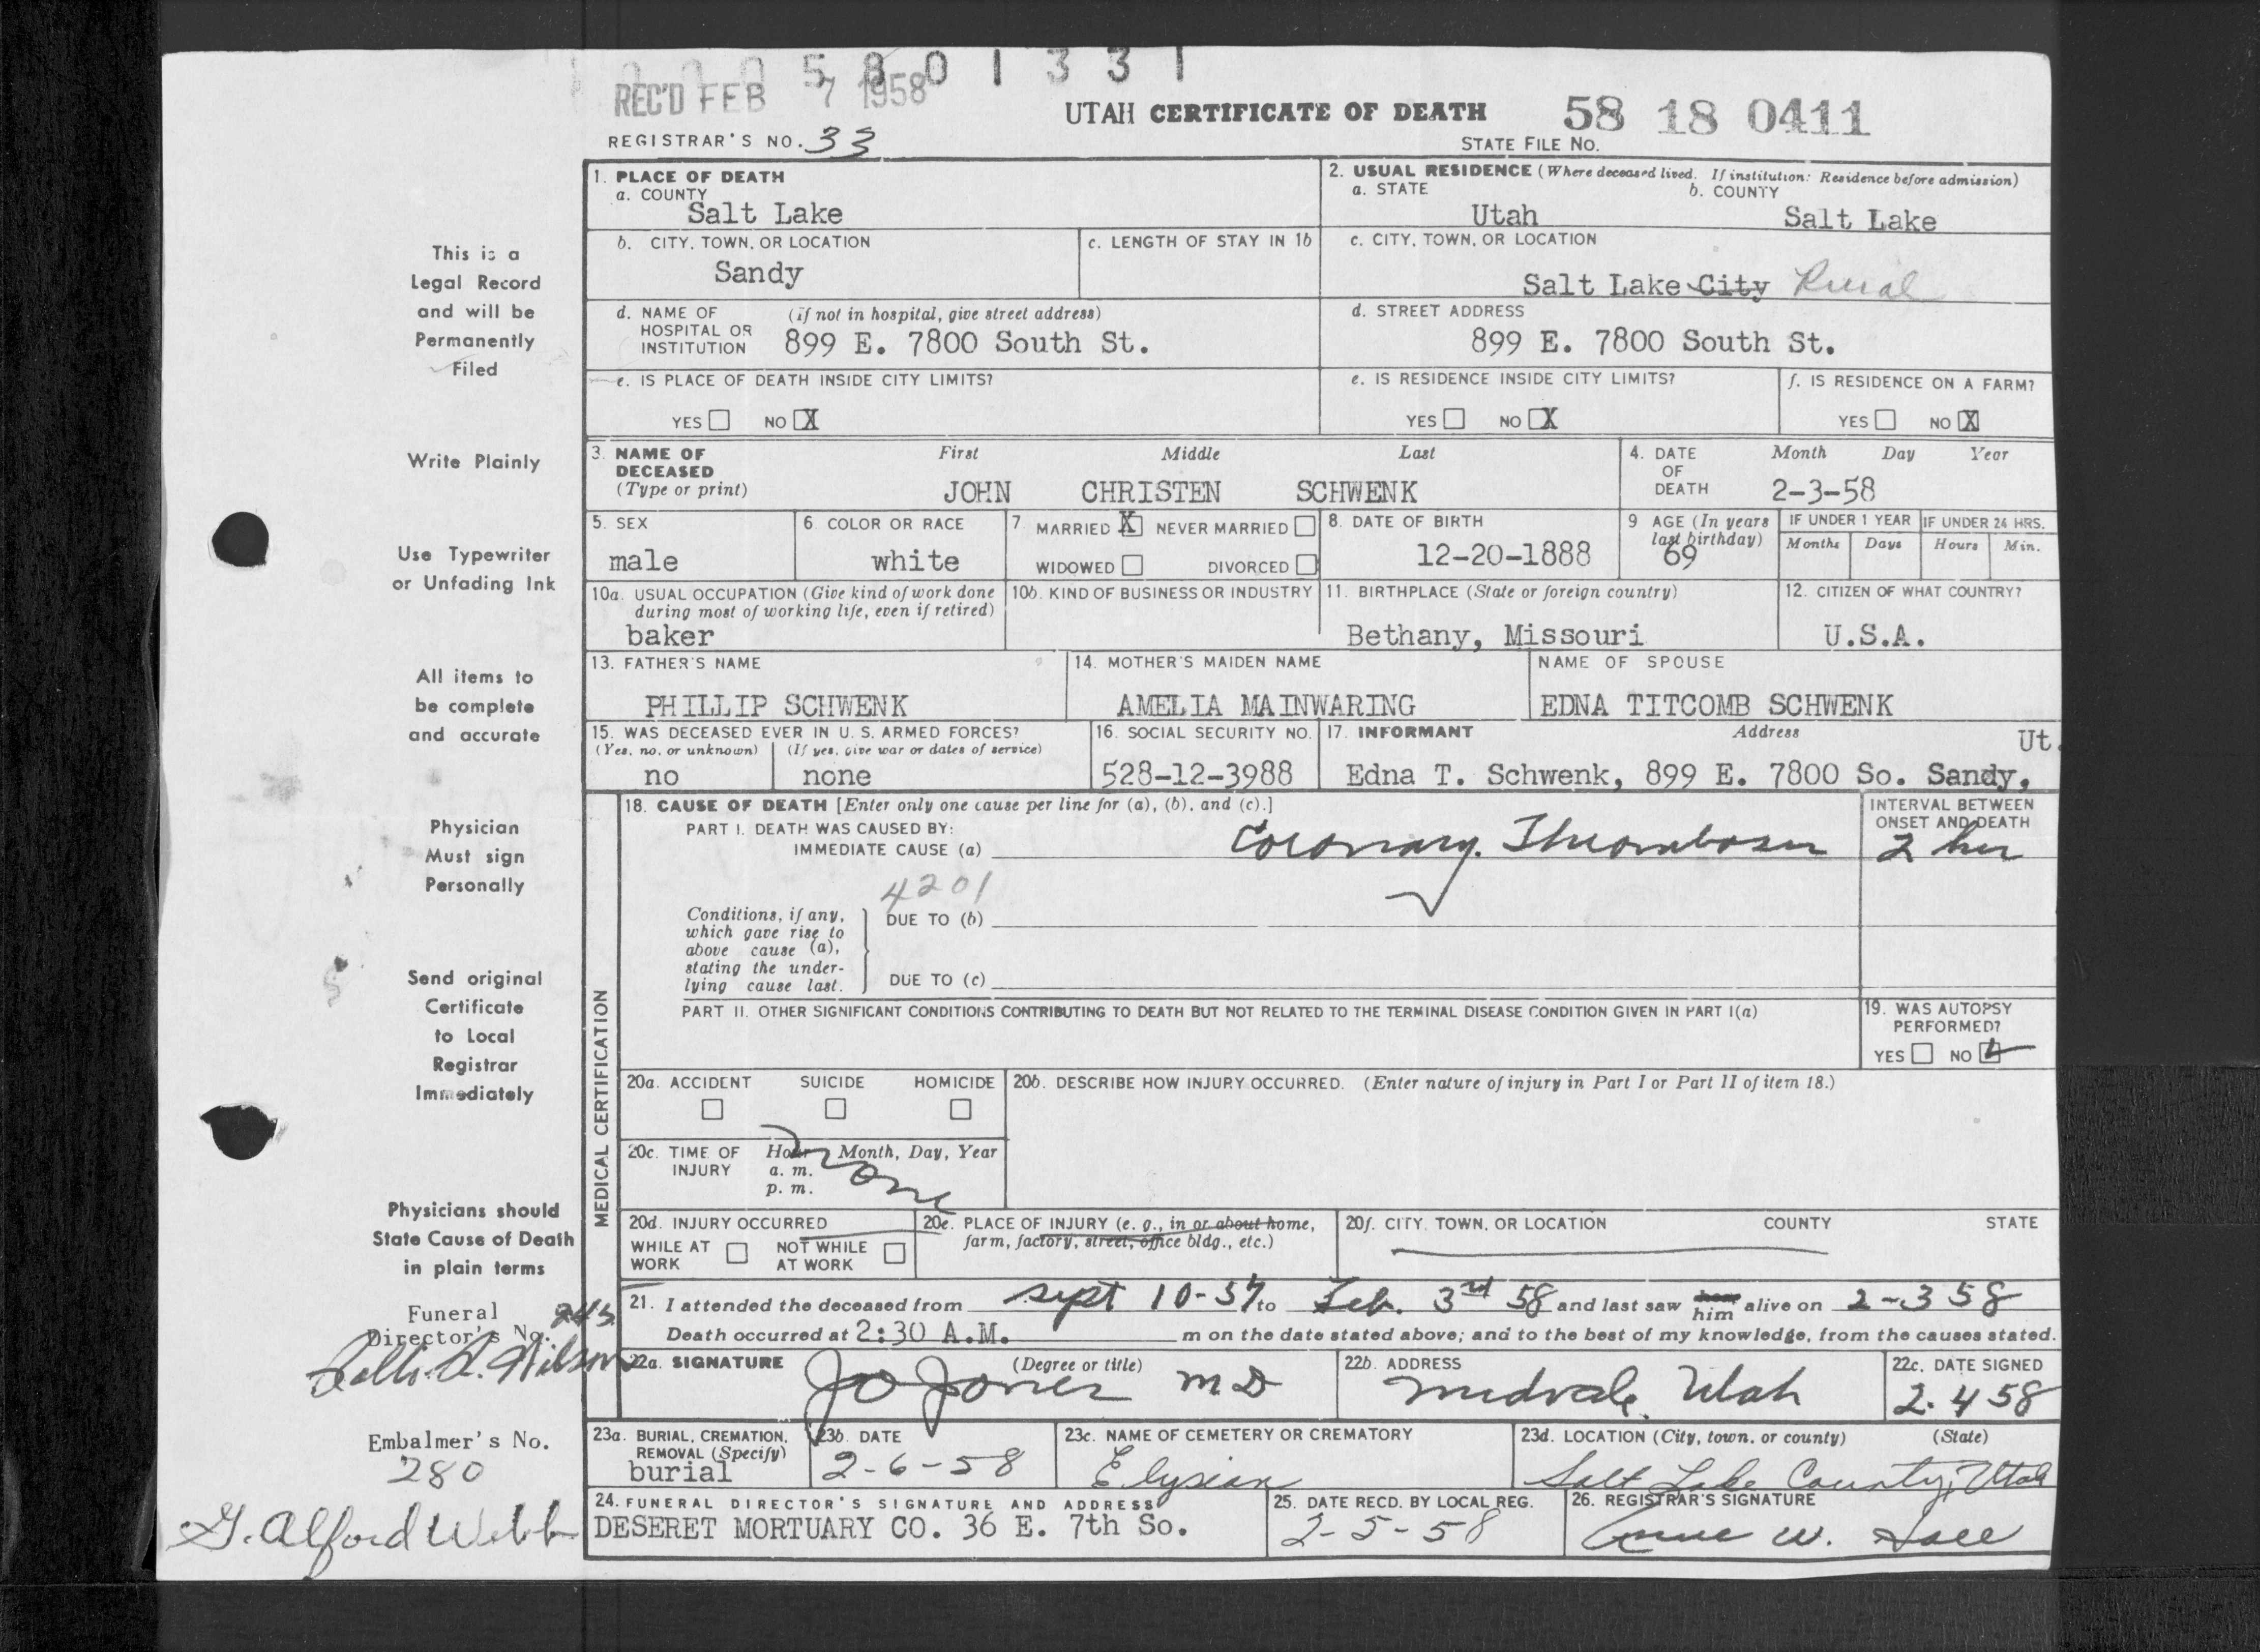 0 0 0 5 8 0 1 3 3 1
REC'D FEB 7 1958
UTAH CERTIFICATE OF DEATH 58 18 0411
REGISTRAR'S NO. 33 STATE FILE NO.
1. PLACE OF DEATH
a. COUNTY
Salt Lake
2. USUAL RESIDENCE (Where deceased lived. If institution: Residence before admission)
a. STATE b. COUNTY
Utah Salt Lake
b. CITY, TOWN, OR LOCATION
Sandy
c. LENGTH OF STAY IN 1b
c. CITY, TOWN, OR LOCATION
Salt Lake City Rural
d. NAME OF (if not in hospital, give street address)
HOSPITAL OR
INSTITUTION 899 E. 7800 South St.
d. STREET ADDRESS
899 E. 7800 South St.
e. IS PLACE OF DEATH INSIDE CITY LIMITS?
YES NO X
e. IS RESIDENCE INSIDE CITY LIMITS?
YES NO X
f. IS RESIDENCE ON A FARM?
YES NO X
3. NAME OF First Middle Last
DECEASED
(Type or print) JOHN CHRISTEN SCHWENK
4. DATE Month Day Year
OF
DEATH 2-3-58
5. SEX
male
6 COLOR OR RACE
white
7. MARRIED X NEVER MARRIED
WIDOWED DIVORCED
8. DATE OF BIRTH
12-20-1888
9 AGE (In years
last birthday)
69
IF UNDER 1 YEAR IF UNDER 24 HRS.
Months Days Hours Min.
10a. USUAL OCCUPATION (Give kind of work done
during most of working life, even if retired)
baker
10b. KIND OF BUSINESS OR INDUSTRY
11. BIRTHPLACE (State or foreign country)
Bethany, Missouri
12. CITIZEN OF WHAT COUNTRY?
U.S.A.
13. FATHER'S NAME
PHILLIP SCHWENK
14. MOTHER'S MAIDEN NAME
AMELIA MAINWARING
NAME OF SPOUSE
EDNA TITCOMB SCHWENK
15. WAS DECEASED EVER IN U. S. ARMED FORCES?
(Yes, no. or unknown) (If yes, give war or dates of service)
no none
16. SOCIAL SECURITY NO.
528-12-3988
17. INFORMANT Address Ut.
Edna T. Schwenk, 899 E. 7800 So. Sandy,
MEDICAL CERTIFICATION
18. CAUSE OF DEATH [Enter only one cause per line for (a), (b), and (c).]
PART I. DEATH WAS CAUSED BY:
IMMEDIATE CAUSE (a) Coronary Thrombosis
INTERVAL BETWEEN
ONSET AND DEATH
2 hrs
4201
Conditions, if any,
which gave rise to
above cause (a),
stating the under-
lying cause last.
DUE TO (b)
DUE TO (c)
PART II. OTHER SIGNIFICANT CONDITIONS CONTRIBUTING TO DEATH BUT NOT RELATED TO THE TERMINAL DISEASE CONDITION GIVEN IN PART I(a)
19. WAS AUTOPSY
PERFORMED?
YES NO
20a. ACCIDENT SUICIDE HOMICIDE
20b. DESCRIBE HOW INJURY OCCURRED. (Enter nature of injury in Part I or Part II of item 18.)
20c. TIME OF Hour Month, Day, Year
INJURY a. m.
p. m.
none
20d. INJURY OCCURRED
WHILE AT WORK NOT WHILE AT WORK
20e. PLACE OF INJURY (e. g., in or about home,
farm, factory, street, office bldg., etc.)
20f. CITY, TOWN, OR LOCATION COUNTY STATE
21. I attended the deceased from Sept 10-57 to Feb. 3rd 58 and last saw her him alive on 2-3 58
Death occurred at 2:30 A.M. m on the date stated above; and to the best of my knowledge, from the causes stated.
22a. SIGNATURE (Degree or title)
JO Jones MD
22b. ADDRESS
Midvale, Utah
22c. DATE SIGNED
2-4 58
23a. BURIAL, CREMATION,
REMOVAL (Specify)
burial
23b. DATE
2-6-58
23c. NAME OF CEMETERY OR CREMATORY
Elysian
23d. LOCATION (City, town, or county) (State)
Salt Lake County, Utah
24. FUNERAL DIRECTOR'S SIGNATURE AND ADDRESS
DESERET MORTUARY CO. 36 E. 7th So.
25. DATE RECD. BY LOCAL REG.
2-5-58
26. REGISTRAR'S SIGNATURE
W.
This is a
Legal Record
and will be
Permanently
Filed
Write Plainly
Use Typewriter
or Unfading Ink
All items to
be complete
and accurate
Physician
Must sign
Personally
Send original
Certificate
to Local
Registrar
Immediately
Physicians should
State Cause of Death
in plain terms
Funeral
Director's No.
Wilson
Embalmer's No.
280
G. Alford Webb